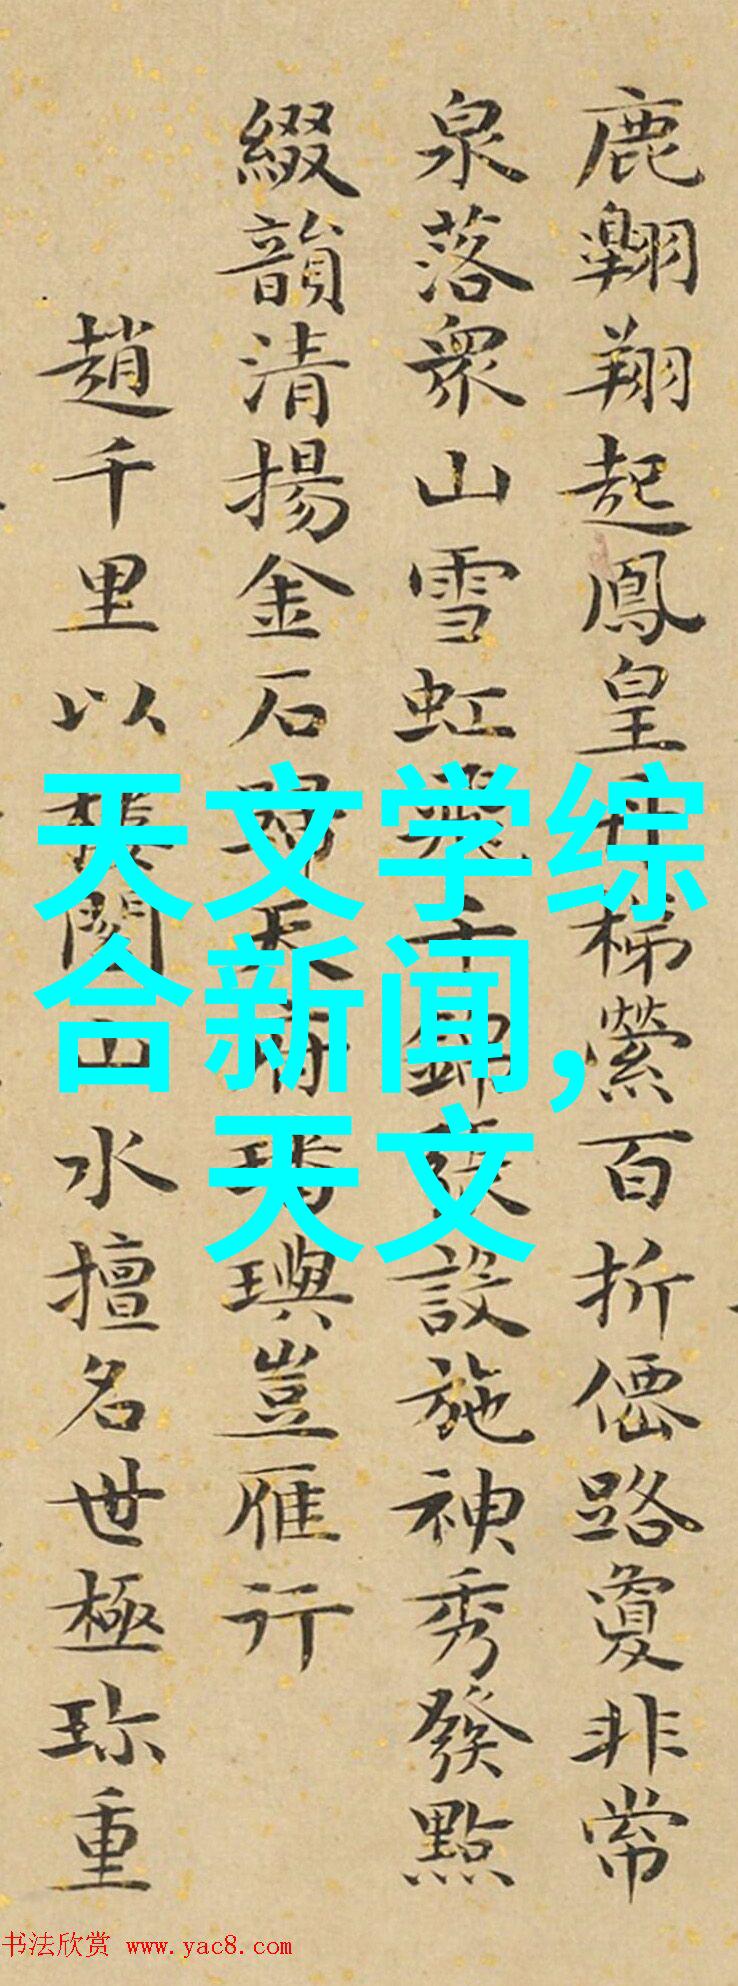 鹿翺翔起鳳皇丹梯縈百折僊路敻非常
泉落衆山雪虹飛千錦張設施神秀發點
綴韻清揚金石歸天府璠璵豈雁行
趙千里以樓閣山水擅名世極珎重
天文学综
合新闻,
天文
书法欣赏 www.yac8.com